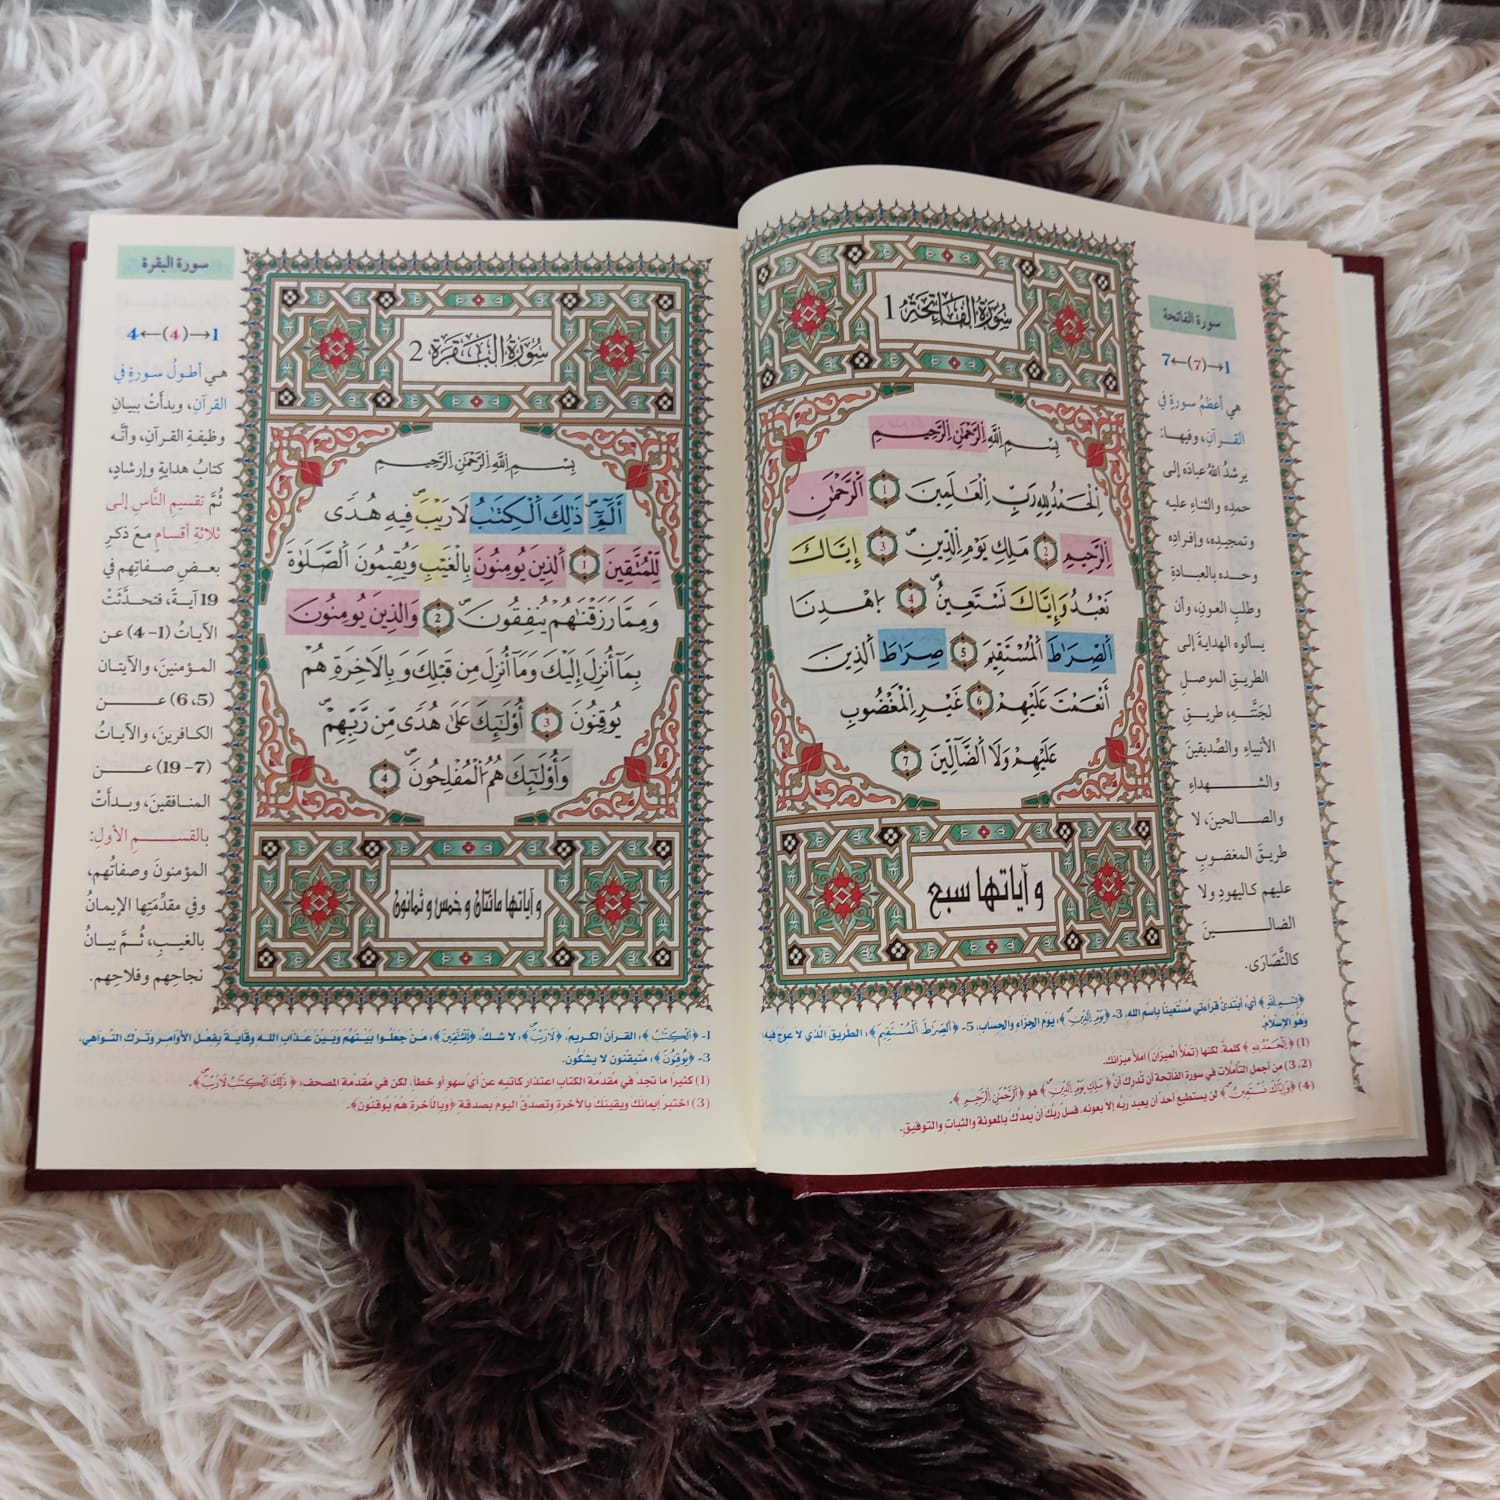 سورة الفاتحة
1←(7)→7
هي أعظمُ سورةٍ في
القـرآنِ، وفيهـا:
يرشدُ اللهُ عبادَه إلى
حمدِه والثناءِ عليه
وتمجيدِه، وإفرادِه
وحده بالعبـادةِ
وطلبِ العونِ، وأن
يسألوه الهدايةَ إلى
الطريقِ الموصلِ
لجنَّتِـهِ، طريـقِ
الأنبياءِ والصِّديقينَ
والشـــهداءِ
والصــالحينَ، لا
طريقَ المغضوبِ
عليهم كاليهودِ ولا
الضالــــينَ
كالنَّصَارَى.
سُورَةُ الْفَاتِحَةِ 1
بِسْمِ اِللَّهِ اِلرَّحْمَٰنِ اِلرَّحِيمِ
اِلْحَمْدُ لِلهِ رَبِّ اِلْعَٰلَمِينَ 1 اَلرَّحْمَٰنِ
اِلرَّحِيمِ 2 مَلِكِ يَوْمِ اِلدِّينِۖ 3 إِيَّاكَ
نَعْبُدُ وَإِيَّاكَ نَسْتَعِينُۖ 4 اَ۪هْدِنَا
اَ۬لصِّرَٰطَ اَ۬لْمُسْتَقِيمَ 5 صِرَٰطَ اَ۬لذِينَ
أَنْعَمْتَ عَلَيْهِمْ 6 غَيْرِ اِ۬لْمَغْضُوبِ
عَلَيْهِمْ وَلَا اَ۬لضَّآلِّينَ 7
و آياتها سبع
﴿بِسْمِ اِللَّهِ﴾ أي: أبتدئ قراءتي مُستعينًا باسم الله، 3- ﴿يَوْمِ اِلدِّينِۖ﴾: يوم الجزاء والحساب، 5- ﴿اَ۬لصِّرَٰطَ اَ۬لْمُسْتَقِيمَ﴾: الطريق الذي لا عوج فيه؛
وهو الإسلام.
(1) ﴿اِلْحَمْدُ لِلهِ﴾ كلمة، لكنها (تملأ الميزان) املأ ميزانك.
(3،2) من أجمل التأملات في سورة الفاتحة أن تدرك أنَّ ﴿مَلِكِ يَوْمِ اِلدِّينِۖ﴾ هو ﴿اَلرَّحْمَٰنِ اِلرَّحِيمِ﴾.
(4) ﴿وَإِيَّاكَ نَسْتَعِينُۖ﴾ لن يستطيع أحد أن يعبد ربه إلا بعونه، فسل ربك أن يمدك بالمعونة والثبات والتوفيق.
سورة البقرة
1←(4)→4
هي أطولُ سورةٍ في
القرآنِ، وبدأتْ ببيانِ
وظيفةِ القرآنِ، وأنَّه
كتابُ هدايةٍ وإرشادٍ،
ثُمَّ تقسيمِ النَّاسِ إلى
ثلاثةِ أقسـامٍ معَ ذكرِ
بعـضِ صفـاتِهم في
19 آيـةً، فتحـدَّثَتْ
الآيـاتُ (1- 4) عن
المؤمنينَ، والآيتان
(5، 6) عـــن
الكـافرينَ، والآيـاتُ
(7- 19) عــن
المنـافقينَ، وبـدأَتْ
بالقســـمِ الأولِ:
المؤمنونَ وصفاتُهم،
وفي مقدِّمَتِها الإيمانُ
بالغيبِ، ثُـمَّ بيـانُ
نجاحِهم وفلاحِهم.
سُورَةُ الْبَقَرَةِ 2
بِسْمِ اِللَّهِ اِلرَّحْمَٰنِ اِلرَّحِيمِ
أَلَٓمِّٓۖ ذَٰلِكَ اَ۬لْكِتَٰبُ لَا رَيْبَۖ فِيهِ هُدٗى
لِّلْمُتَّقِينَ 1 اَ۬لذِينَ يُومِنُونَ بِالْغَيْبِ وَيُقِيمُونَ اَ۬لصَّلَوٰةَ
وَمِمَّا رَزَقْنَٰهُمْ يُنفِقُونَۖ 2 وَالذِينَ يُومِنُونَ
بِمَآ أُنزِلَ إِلَيْكَ وَمَآ أُنزِلَ مِن قَبْلِكَ وَبِالَاخِرَةِ هُمْ
يُوقِنُونَ 3 أُوْلَٰٓئِكَ عَلَىٰ هُدٗى مِّن رَّبِّهِمْۖ
وَأُوْلَٰٓئِكَ هُمُ اُ۬لْمُفْلِحُونَۖ 4
و آياتها مائتان و خمس و ثمانون
1- ﴿اَ۬لْكِتَٰبُ﴾: القرآن الكريم، ﴿لَا رَيْبَۖ﴾: لا شك، ﴿لِّلْمُتَّقِينَ﴾: من جعلوا بينهم وبين عذاب الله وقاية بفعل الأوامر وترك النواهي،
3- ﴿يُوقِنُونَ﴾: متيقنون لا يشكون.
(1) كثيرًا ما تجد في مقدمة الكتاب اعتذار كاتبه عن أي سهو أو خطأ، لكن في مقدمة المصحف: ﴿ذَٰلِكَ اَ۬لْكِتَٰبُ لَا رَيْبَۖ﴾.
(3) اختبر إيمانك ويقينك بالآخرة وتصدق اليوم بصدقة ﴿وَبِالَاخِرَةِ هُمْ يُوقِنُونَ﴾.